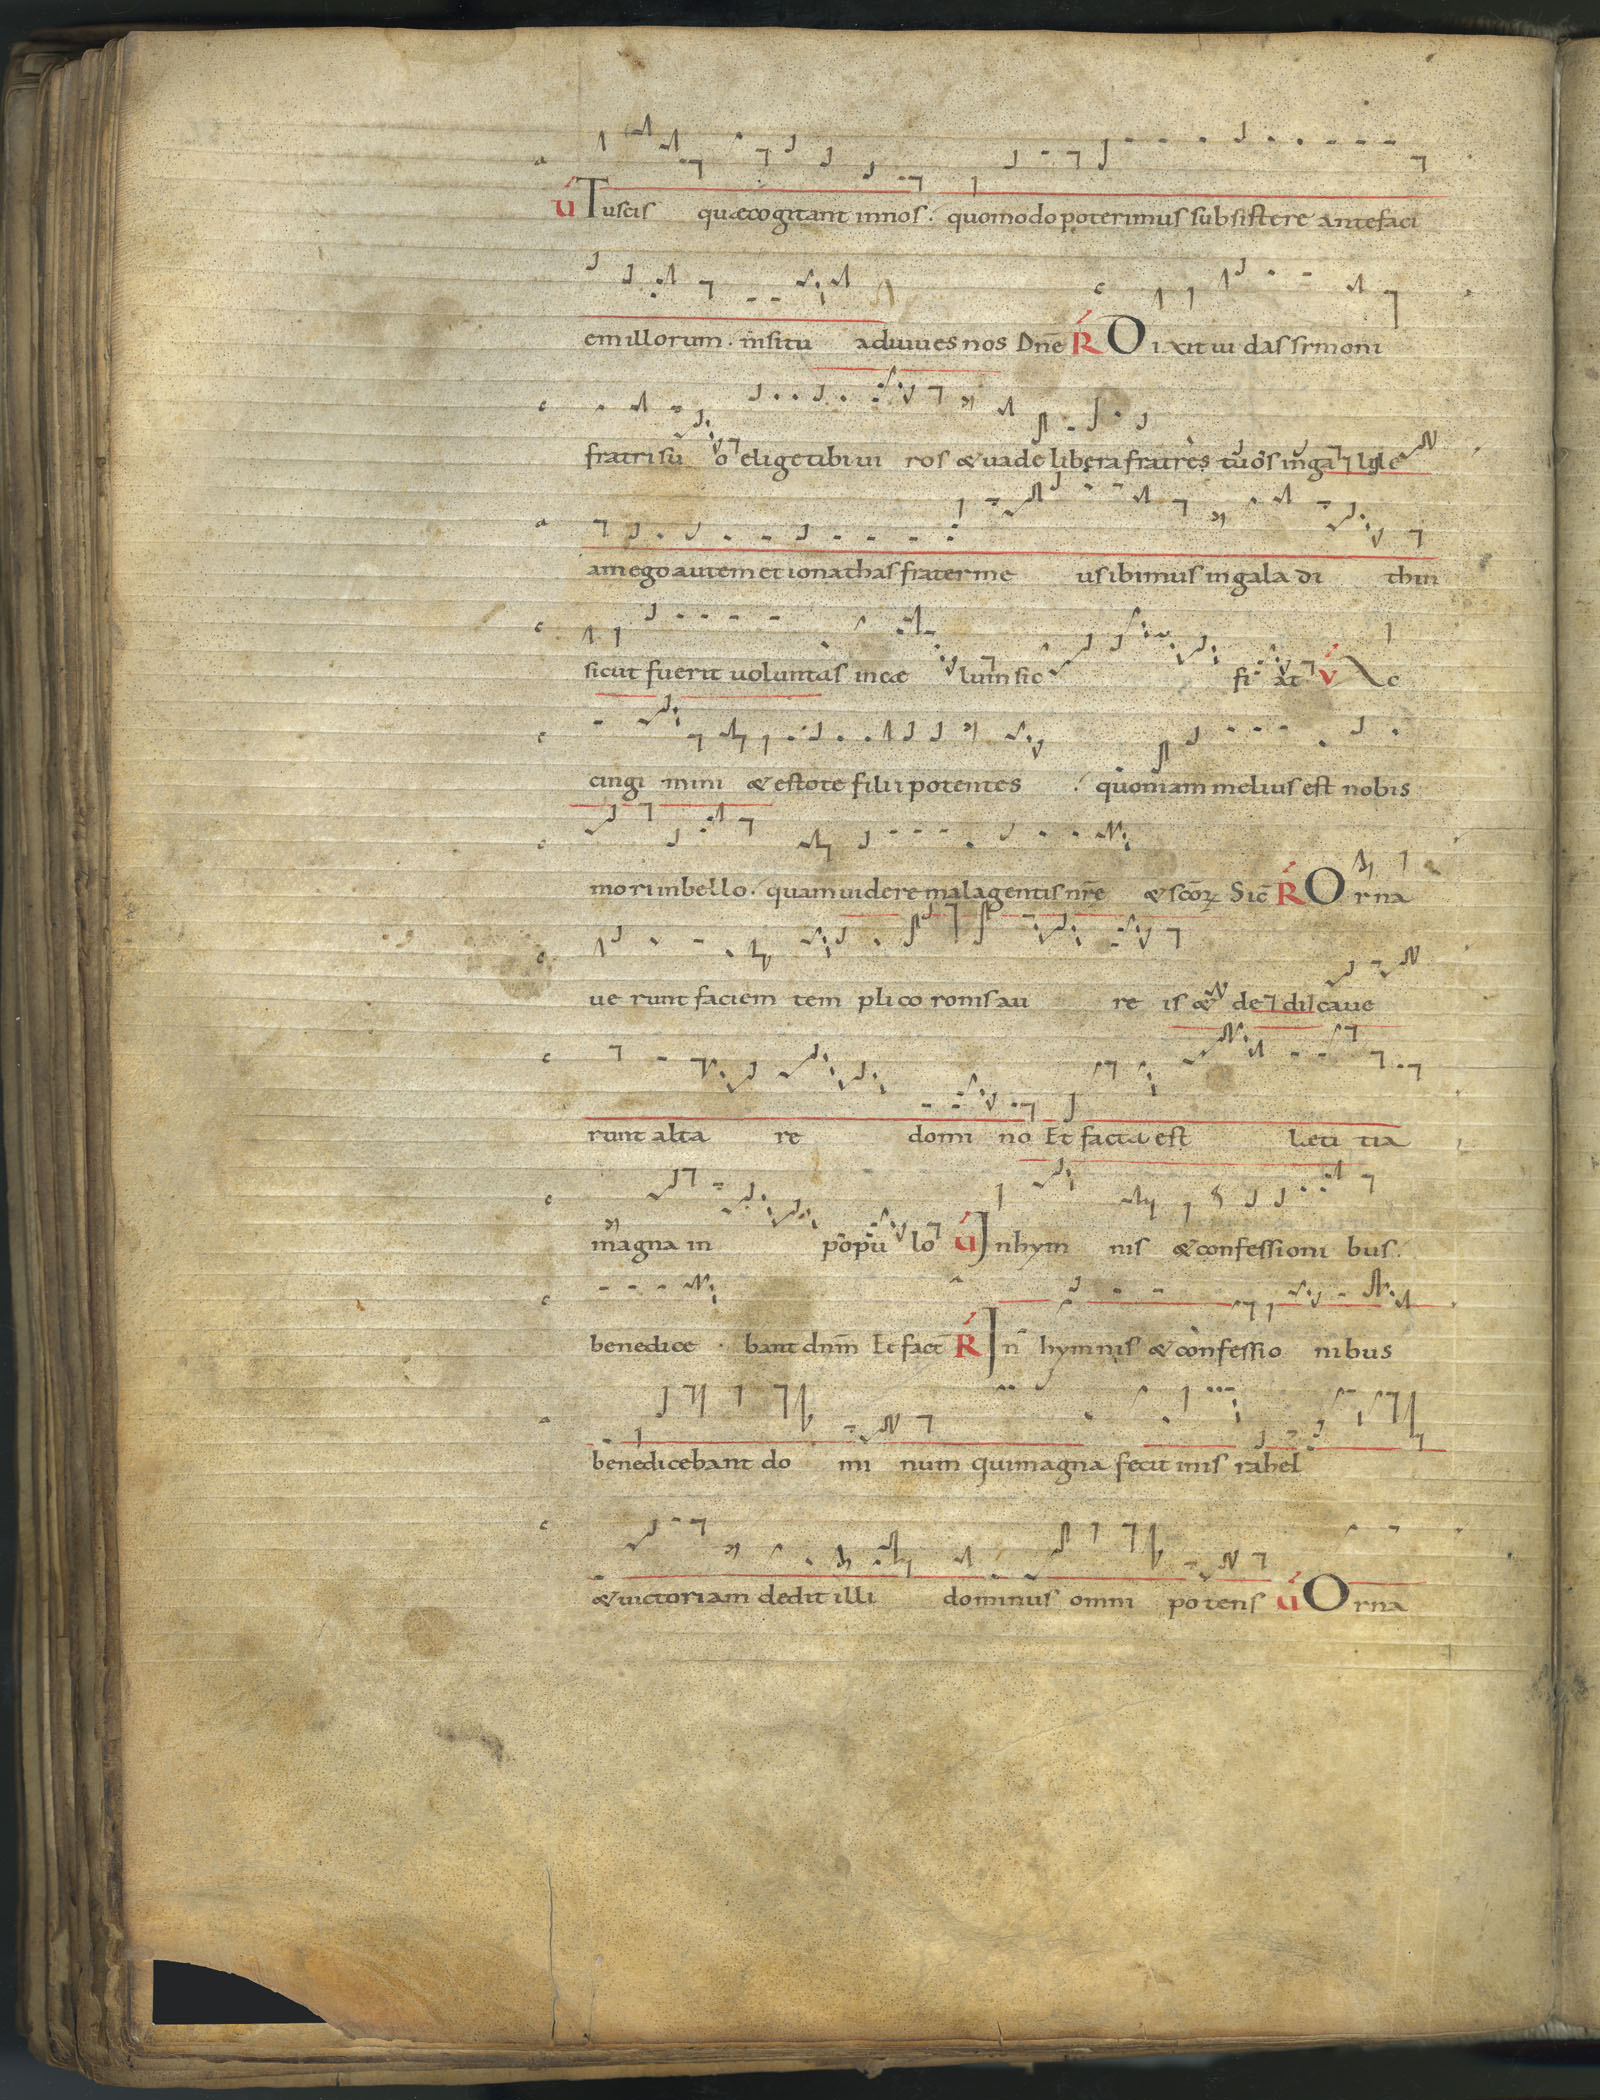 v́ Tu scis quæ cogitant in nos. quomodo poterimus subsistere ante faci
em illorum. in si tu adiuues nos Dn̄e Ŕ Dixit iudas simoni
fratri su o elige tibi ui ros & uade libera fratres tuos in galilę
a ego autem et ionathas frater me us ibimus in gala di thin
sicut fuerit uoluntas in cæ lum sic fi at v́ Ac
cingi mini & estote filii potentes . quoniam melius est nobis
mori in bello. quam uidere mala gentis nr̄e & scōrꝝ Sic̄ Ŕ Orna
ue runt faciem tem pli co ronis au re is & de di caue
runt alta re domi no Et facta est Læti tia
magna in popu lo v́ In hym nis & confessioni bus.
benedice . bant dn̄m Et fact̄ Ŕ In hymnis & confessio nibus
benedicebant do mi num qui magna fecit in israhel
& uictoriam dedit illi dominus omni potens v́ Orna